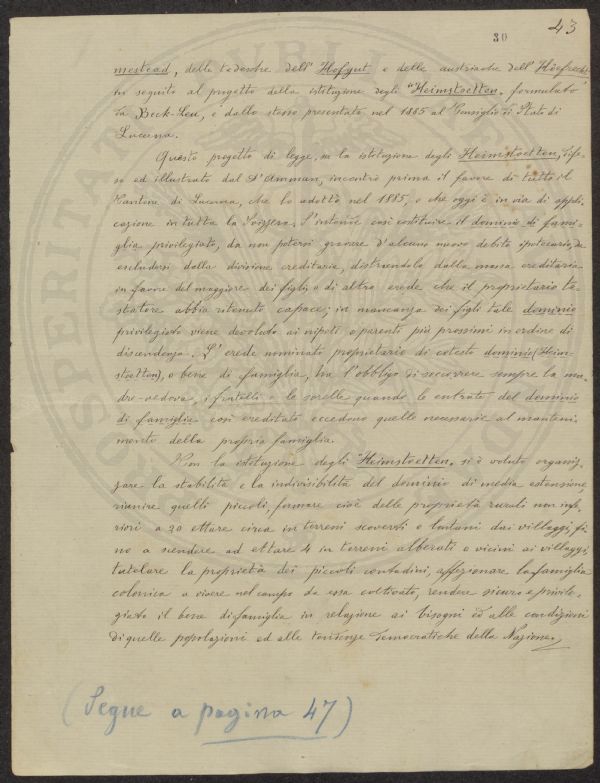 43
30
mestead, delle tedesche dell'Hofgut e delle austriache dell'Höefrecht
in seguito al progetto della istituzione degli "Heimstoetten, formulato
da Beck-Leu, e dallo stesso presentato nel 1885 al Consiglio di Stato di
Lucerna.
Questo progetto di legge, su la istituzione degli Heimstoetten, dife-
so ed illustrato dal D' Amman, incontrò prima il favore di tutto il
Cantone di Lucerna, che lo adottò nel 1885, e che oggi è in via di appli-
cazione in tutta la Svizzera. S'intende così costituire il dominio di fami-
glia privilegiato, da non potersi gravare d'alcuno nuovo debito ipotecario, da
escludersi dalla divisione ereditaria, distraendolo dalla massa ereditaria
in favore del maggiore dei figli, o di altro erede che il proprietario te-
statore abbia ritenuto capace; in mancanza dei figli tale dominio
privilegiato viene devoluto ai nipoti o parenti più prossimi in ordine di
discendenza. L'erede nominato proprietario di cotesto dominio (Heim-
stoetten), o bene di famiglia, ha l'obbligo di soccorrere sempre la ma-
dre-vedova, i fratelli e le sorelle quando le entrate del dominio
di famiglia così ereditato eccedono quelle necessarie al manteni-
mento della propria famiglia.
Con la istituzione degli "Heimstoetten, si è voluto organiz-
zare la stabilità e la indivisibilità del dominio di media estensione,
riunire quelli piccoli, formare cioè delle proprietà rurali non infe-
riori a 20 ettare circa in terreni scoverti e lontani dai villaggi, fi-
no a scendere ad ettare 4 in terreni alberati e vicini ai villaggi,
tutelare la proprietà dei piccoli contadini, affezionare la famiglia
colonica a vivere nel campo da essa coltivato, rendere sicuro e privile-
giato il bene di famiglia in relazione ai bisogni ed alle condizioni
di quelle popolazioni ed alle tendenze democratiche della Nazione.
(Segue a pagina 47)